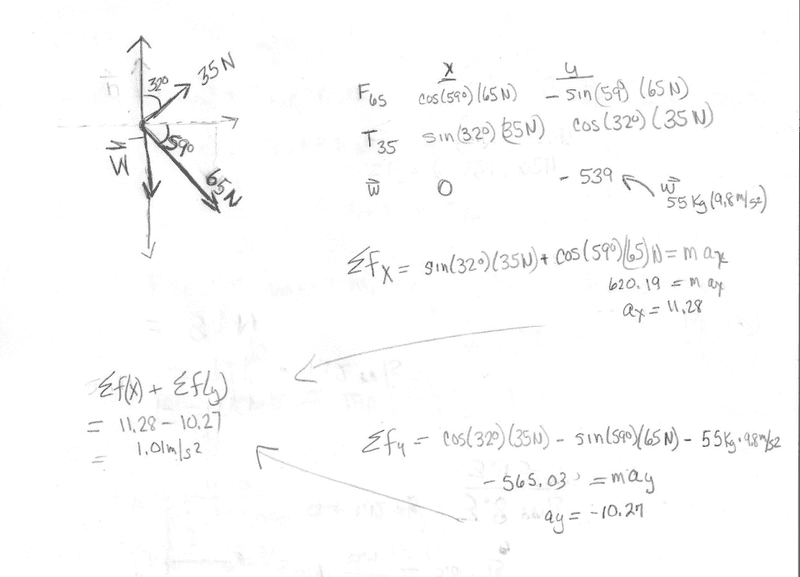 32° 35N
59°
W
65N
x y
F65 cos(59°)(65N) - sin(59°)(65N)
T35 sin(32°)(35N) cos(32°)(35N)
W 0 - 539 W
55kg(9.8m/s2)
Σfx = sin(32°)(35N) + cos(59°)(65)N = max
620.19 = max
ax = 11.28
Σf(x) + Σf(y)
= 11.28 - 10.27
= 1.01m/s2
Σfy = cos(32°)(35N) - sin(59°)(65N) - 55kg·9.8m/s2
- 565.03 = may
ay = -10.27